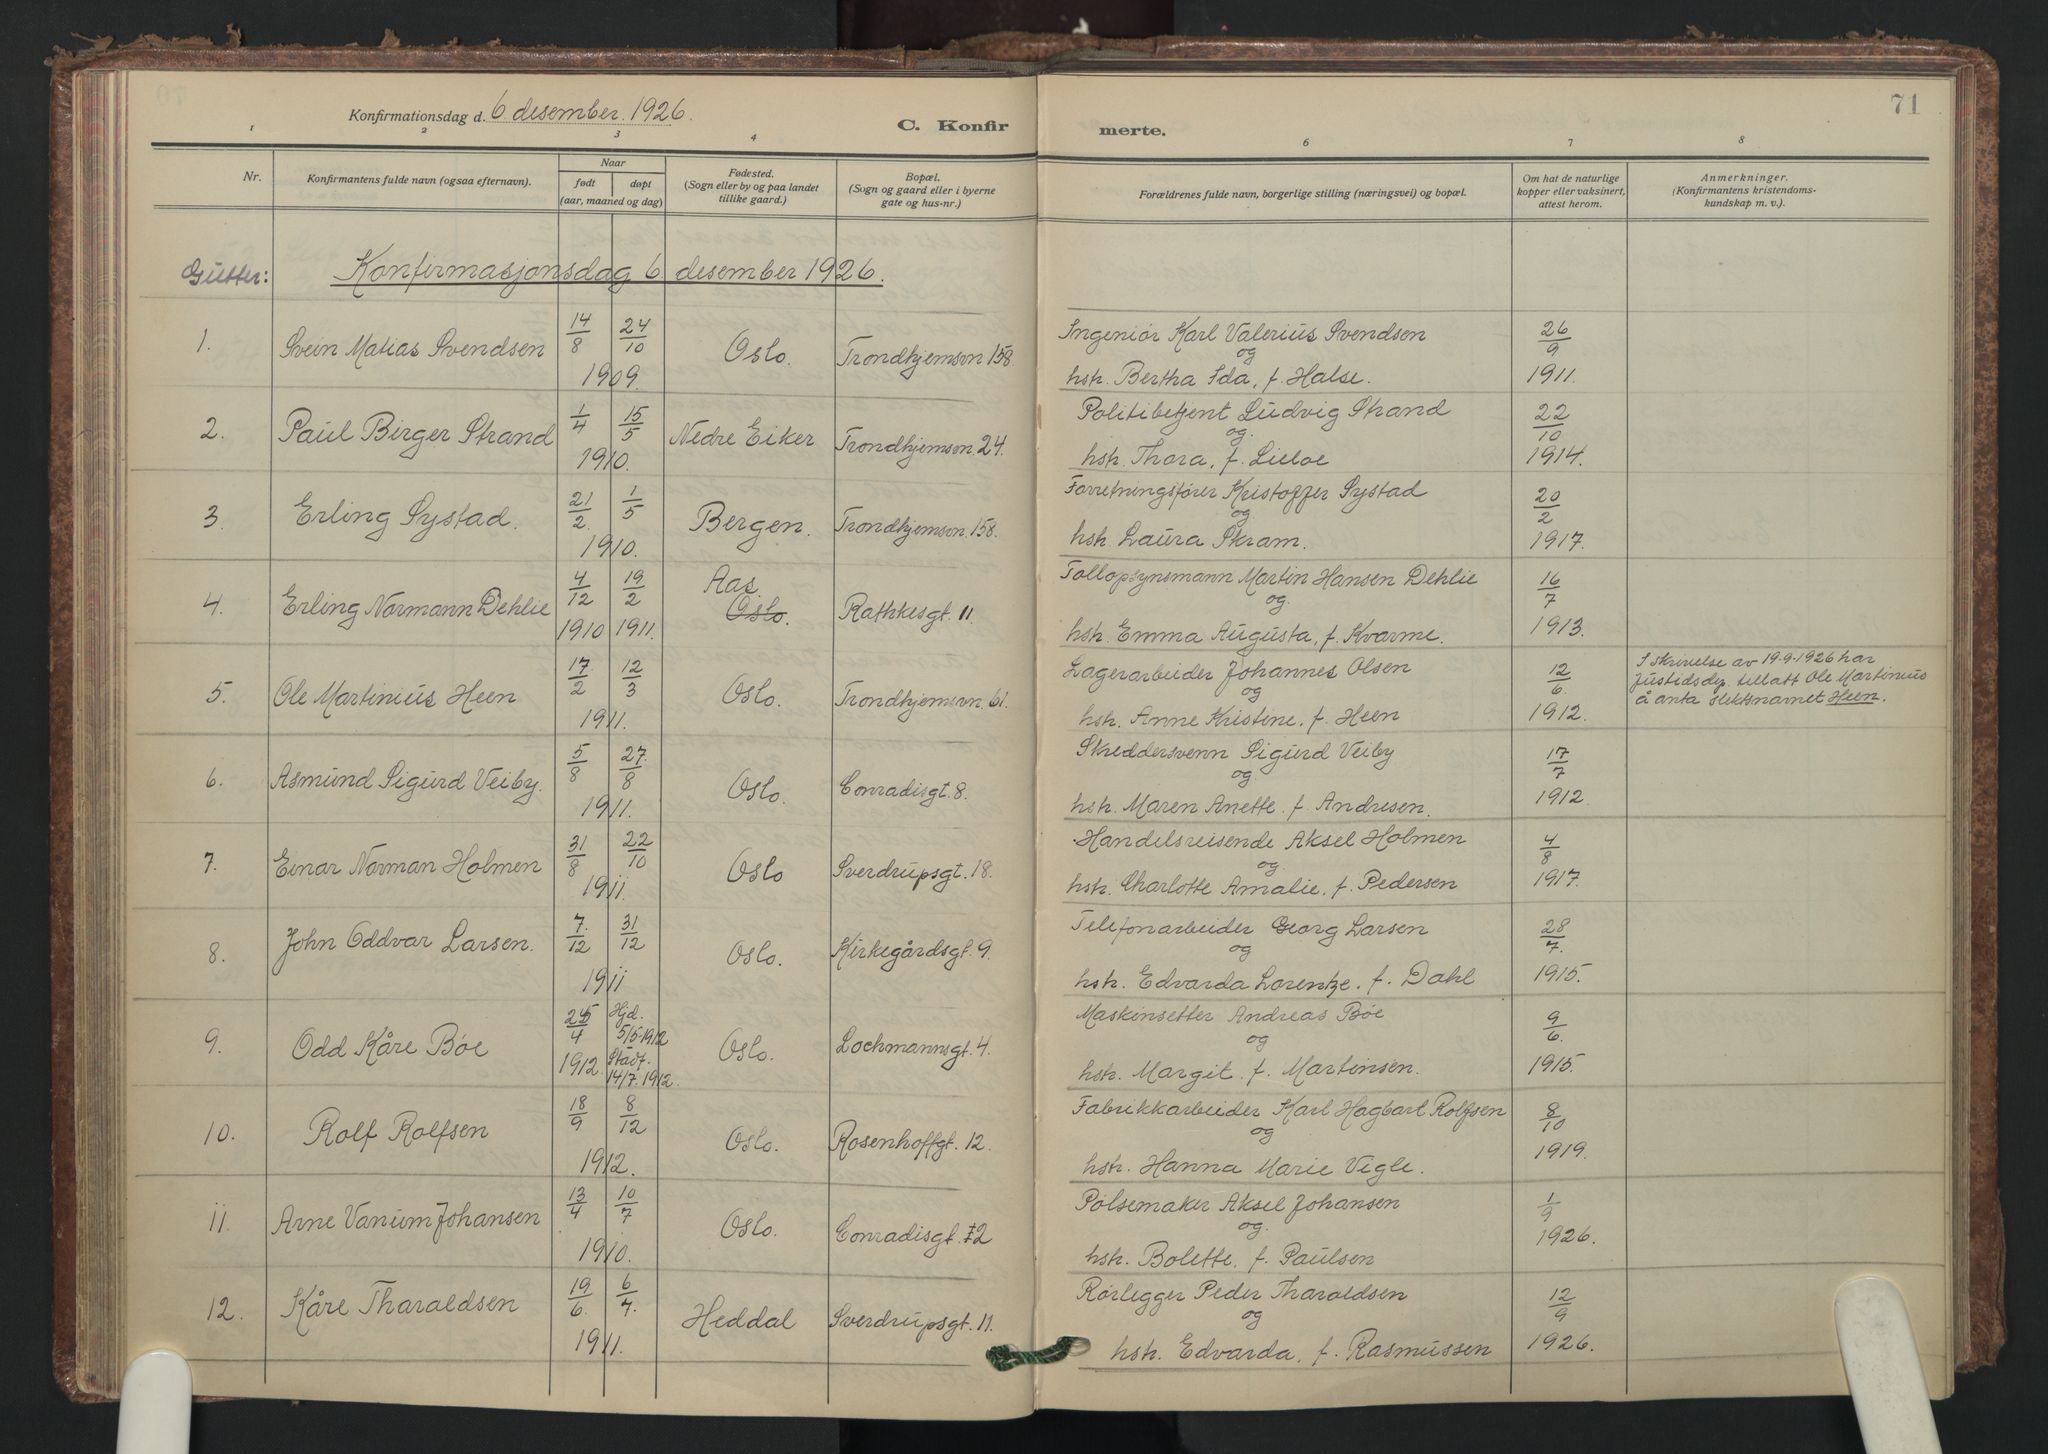 71
Konfirmationsdag d. 6. desember 1926.
C. Konfir merte.
1 2 3 4 5 6 7 8
Nr. Konfirmantens fulde navn (ogsaa efternavn). Naar født døpt (aar, maaned og dag) Fødested. (Sogn eller by og paa landet tillike gaard.) Bopæl. (Sogn og gaard eller i byerne gate og hus-nr.) Forældrenes fulde navn, borgerlige stilling (næringsvei) og bopæl. Om hat de naturlige kopper eller vaksinert, attest herom. Anmerkninger. (Konfirmantens kristendoms-kundskap m. v.).
Gutter: Konfirmasjonsdag 6. desember 1926.
1. Svein Matias Svendsen 14/8 24/10 1909. Oslo. Trondhjemsvn 158. Ingeniør Karl Valerius Svendsen og hstr. Bertha Ida, f. Halse. 26/9 1911.
2. Paul Birger Strand 1/4 15/5 1910. Nedre Eiker Trondhjemsvn. 24. Politibetjent Ludvig Strand og hstr. Thora, f. Lilloe 22/10 1914.
3. Erling Systad. 21/2. 1/5 1910. Bergen. Trondhjemsvn. 158. Forretningsfører Kristoffer Systad og hstr. Laura Skram. 20/2 1917.
4. Erling Normann Dehlie 4/12 1910 19/2 1911. Aas. Oslo. Rathkesgt. 11. Tollopsynsmann Martin Hansen Dehlie og hstr. Emma Augusta, f. Kvarme. 16/7 1913.
5. Ole Martinius Heen 17/2 12/3 1911. Oslo. Trondhjemsvn. 61. Lagerarbeider Johannes Olsen og hstr. Anne Kristine, f. Heen 12/6. 1912. I skrivelse av 19-9-1926 har Justidsdep. tillatt Ole Martinius å anta slektsnavnet Heen.
6. Asmund Sigurd Veiby. 5/8 27./8 1911. Oslo. Conradisgt. 8. Skreddersvenn Sigurd Veiby og hstr. Maren Anette. f. Andresen. 17/7 1912.
7. Einar Norman Holmen 31/8 22/10 1911. Oslo Sverdrupsgt. 18. Handelsreisende Aksel Holmen og hstr. Charlotte Amalie. f. Pedersen 4/8 1917.
8. John Oddvar Larsen. 7./12 31/12 1911 Oslo. Kirkegårdsgt. 9. Telefonarbeider Georg Larsen og hstr. Edvarda Lorentze. f. Dahl 28/7. 1915.
9. Odd Kåre Bøe 25/4 1912 Hjd. 5/5-1912 Stadf. 14/7. 1912. Oslo. Lochmannsgt. 4. Maskinsetter Andreas Bøe og hstr. Margit. f. Martinsen. 9/6 1915.
10. Rolf Rolfsen 18/9 8/12 1912. Oslo. Rosenhoffgt. 12. Fabrikkarbeider Karl Hagbart Rolfsen og hstr. Hanna Marie Vegle. 8/10 1919.
11. Arne Vanum Johansen 13/4 10/7 1910. Oslo. Conradisgt. 12 Pølsemaker Aksel Johansen og hstr. Bolette. f. Paulsen 1/9 1926.
12. Kåre Tharaldsen 19/6. 6/7. 1911. Heddal Sverdrupsgt. 11. Rørlegger Peder Tharaldsen og hstr. Edvarda, f. Rasmussen 12/9 1926.